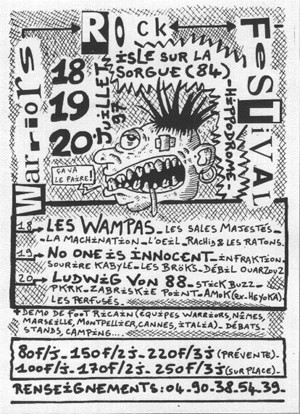 Warriors Rock Festival
18
19
20
Juillet 97
Isle sur la
Sorgue (84)
-Hippodrome-
ça va
le faire!
18 → Les Wampas_ Les Sales Majestés_
_La Machination_L'Oeil_Rachis & les Ratons.
19 → No One Is Innocent_Infraktion_
Sourire Kabyle_Les Bröks_Débil Ouarzou2
20 → Ludwig Von 88_Stick Buzz_
PKRK_Zabriskie Point_Amok (ex. Heyoka)_
Les Perfusés_
+ Demo de Foot Ricain (équipes Warriors, Nîmes,
Marseille, Montpellier, Cannes, Italia)_Débats_
Stands, Camping...
80f/j_150f/2j_220f/3j (prévente)_
100f/j_170f/2j_250f/3j (sur place)_
Renseignements: 04_90_38_54_39_